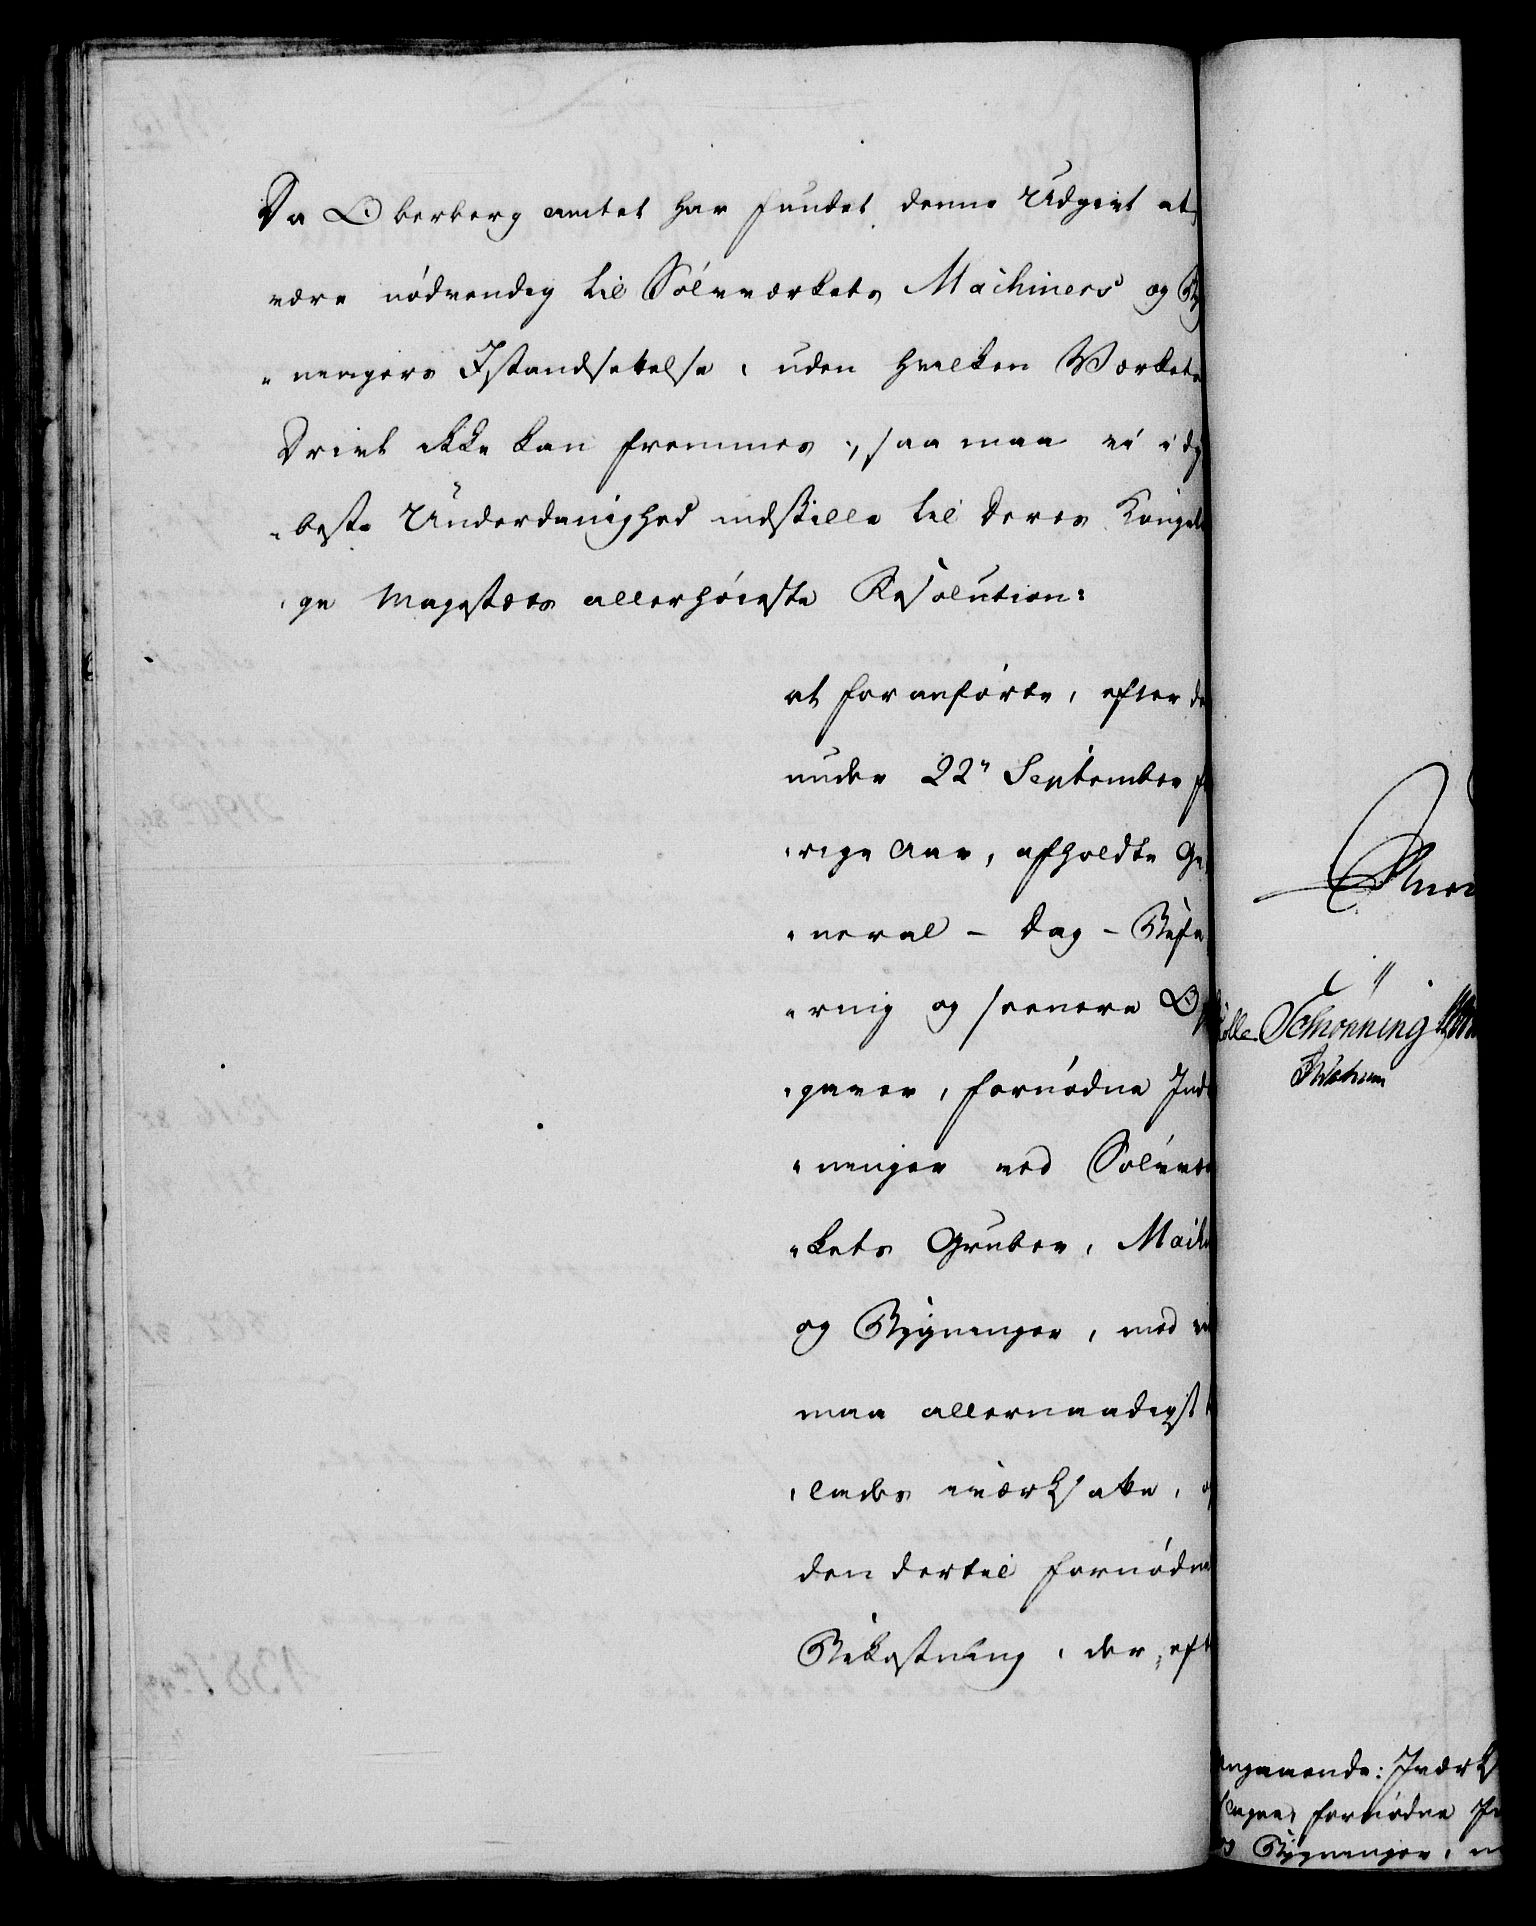 Da Oberberg amtet har fundet denne Udgivt at
være nødvendig til Sølvværkets Machiners og By
"ningers Istandsettelse, uden hvilken Værkets
Drivt ikke kan fremmes; saa maa vi i dy
"beste Underdanighed indstille til Deres Kongeli
"ge Majestæts allerhøieste Resolution:
at foranførte, efter de
under 22" September fo
"rige Aar, afholdte Ge
"neral - Dag - Befa
"ring og seenere Op
"gaver, fornødne Ind
"ninger ved Sølvvær
"kets Gruber, Machi
og Bygninger, med vi
maa allernaadigst t
"lades iværksatte, o
den dertil fornødne
Bekostning, der, eft
Schønning
angaaende: Iværks
fornødne In
Bygninger, m